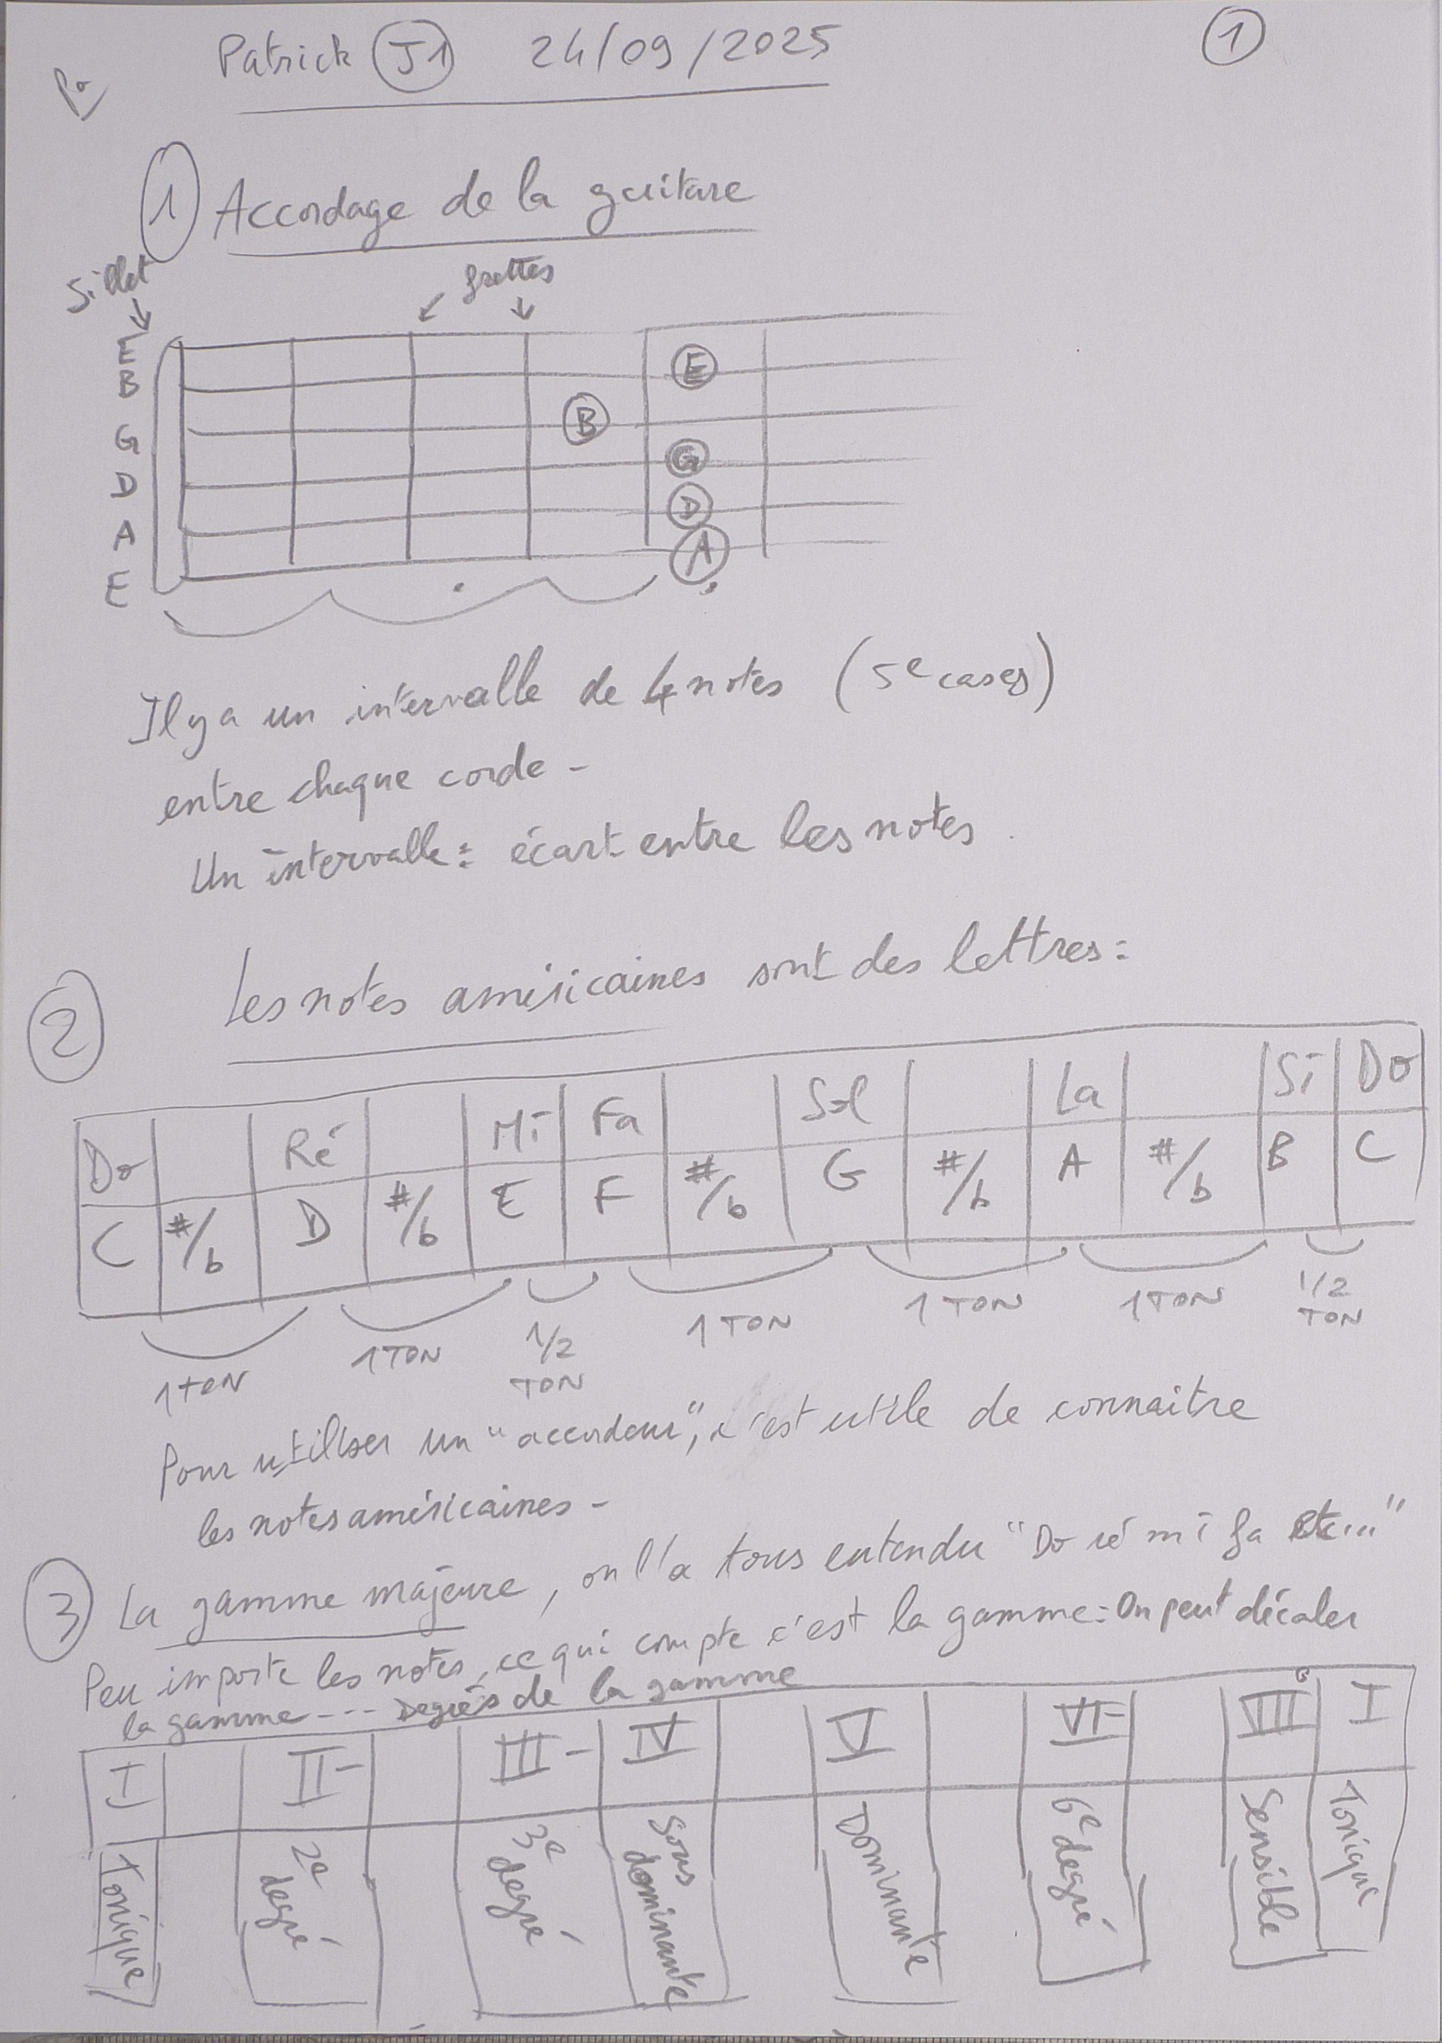 Patrick J1 24/09/2025
1
1 Accordage de la guitare
Sillet
frettes
E
B
G
D
A
E
E
B
G
D
A
Il y a un intervalle de 4 notes (5e cases)
entre chaque corde -
Un intervalle = écart entre les notes.
2 Les notes américaines sont des lettres :
Do Ré Mi Fa Sol La Si Do
C #/b D #/b E F #/b G #/b A #/b B C
1 TON 1 TON 1/2 TON 1 TON 1 TON 1 TON 1/2 TON
Pour utiliser un "accordeur", c'est utile de connaitre
les notes américaines -
3 La gamme majeure, on l'a tous entendu "Do ré mi fa etc..."
Peu importe les notes, ce qui compte c'est la gamme : On peut décaler
la gamme --- Degrés de la gamme
I II- III- IV V VI- VII° I
Tonique 2e degré 3e degré Sous dominante Dominante 6e degré Sensible Tonique